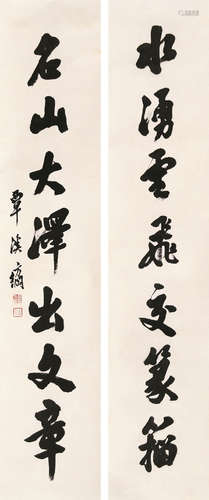 水湧雲飛交篆籀
名山大澤出文章
覃溪